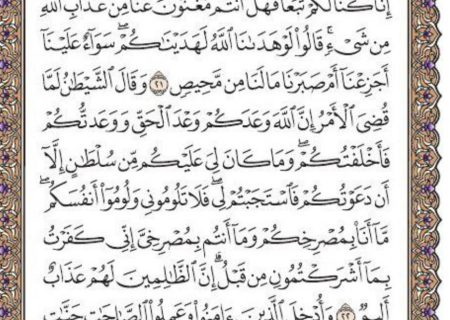 إِنَّا كُنَّا لَكُمْ تَبَعًا فَهَلْ أَنتُم مُّغْنُونَ عَنَّا مِنْ عَذَابِ ٱللَّهِ
مِن شَىْءٍ ۚ قَالُوا۟ لَوْ هَدَىٰنَا ٱللَّهُ لَهَدَيْنَٰكُمْ ۖ سَوَآءٌ عَلَيْنَآ
أَجَزِعْنَآ أَمْ صَبَرْنَا مَا لَنَا مِن مَّحِيصٍ ٢١ وَقَالَ ٱلشَّيْطَٰنُ لَمَّا
قُضِىَ ٱلْأَمْرُ إِنَّ ٱللَّهَ وَعَدَكُمْ وَعْدَ ٱلْحَقِّ وَوَعَدتُّكُمْ
فَأَخْلَفْتُكُمْ ۖ وَمَا كَانَ لِىَ عَلَيْكُم مِّن سُلْطَٰنٍ إِلَّآ
أَن دَعَوْتُكُمْ فَٱسْتَجَبْتُمْ لِى ۖ فَلَا تَلُومُونِى وَلُومُوٓا۟ أَنفُسَكُم ۖ
مَّآ أَنَا۠ بِمُصْرِخِكُمْ وَمَآ أَنتُم بِمُصْرِخِىَّ ۖ إِنِّى كَفَرْتُ
بِمَآ أَشْرَكْتُمُونِ مِن قَبْلُ ۗ إِنَّ ٱلظَّٰلِمِينَ لَهُمْ عَذَابٌ
أَلِيمٌ ٢٢ وَأُدْخِلَ ٱلَّذِينَ ءَامَنُوا۟ وَعَمِلُوا۟ ٱلصَّٰلِحَٰتِ جَنَّٰتٍ